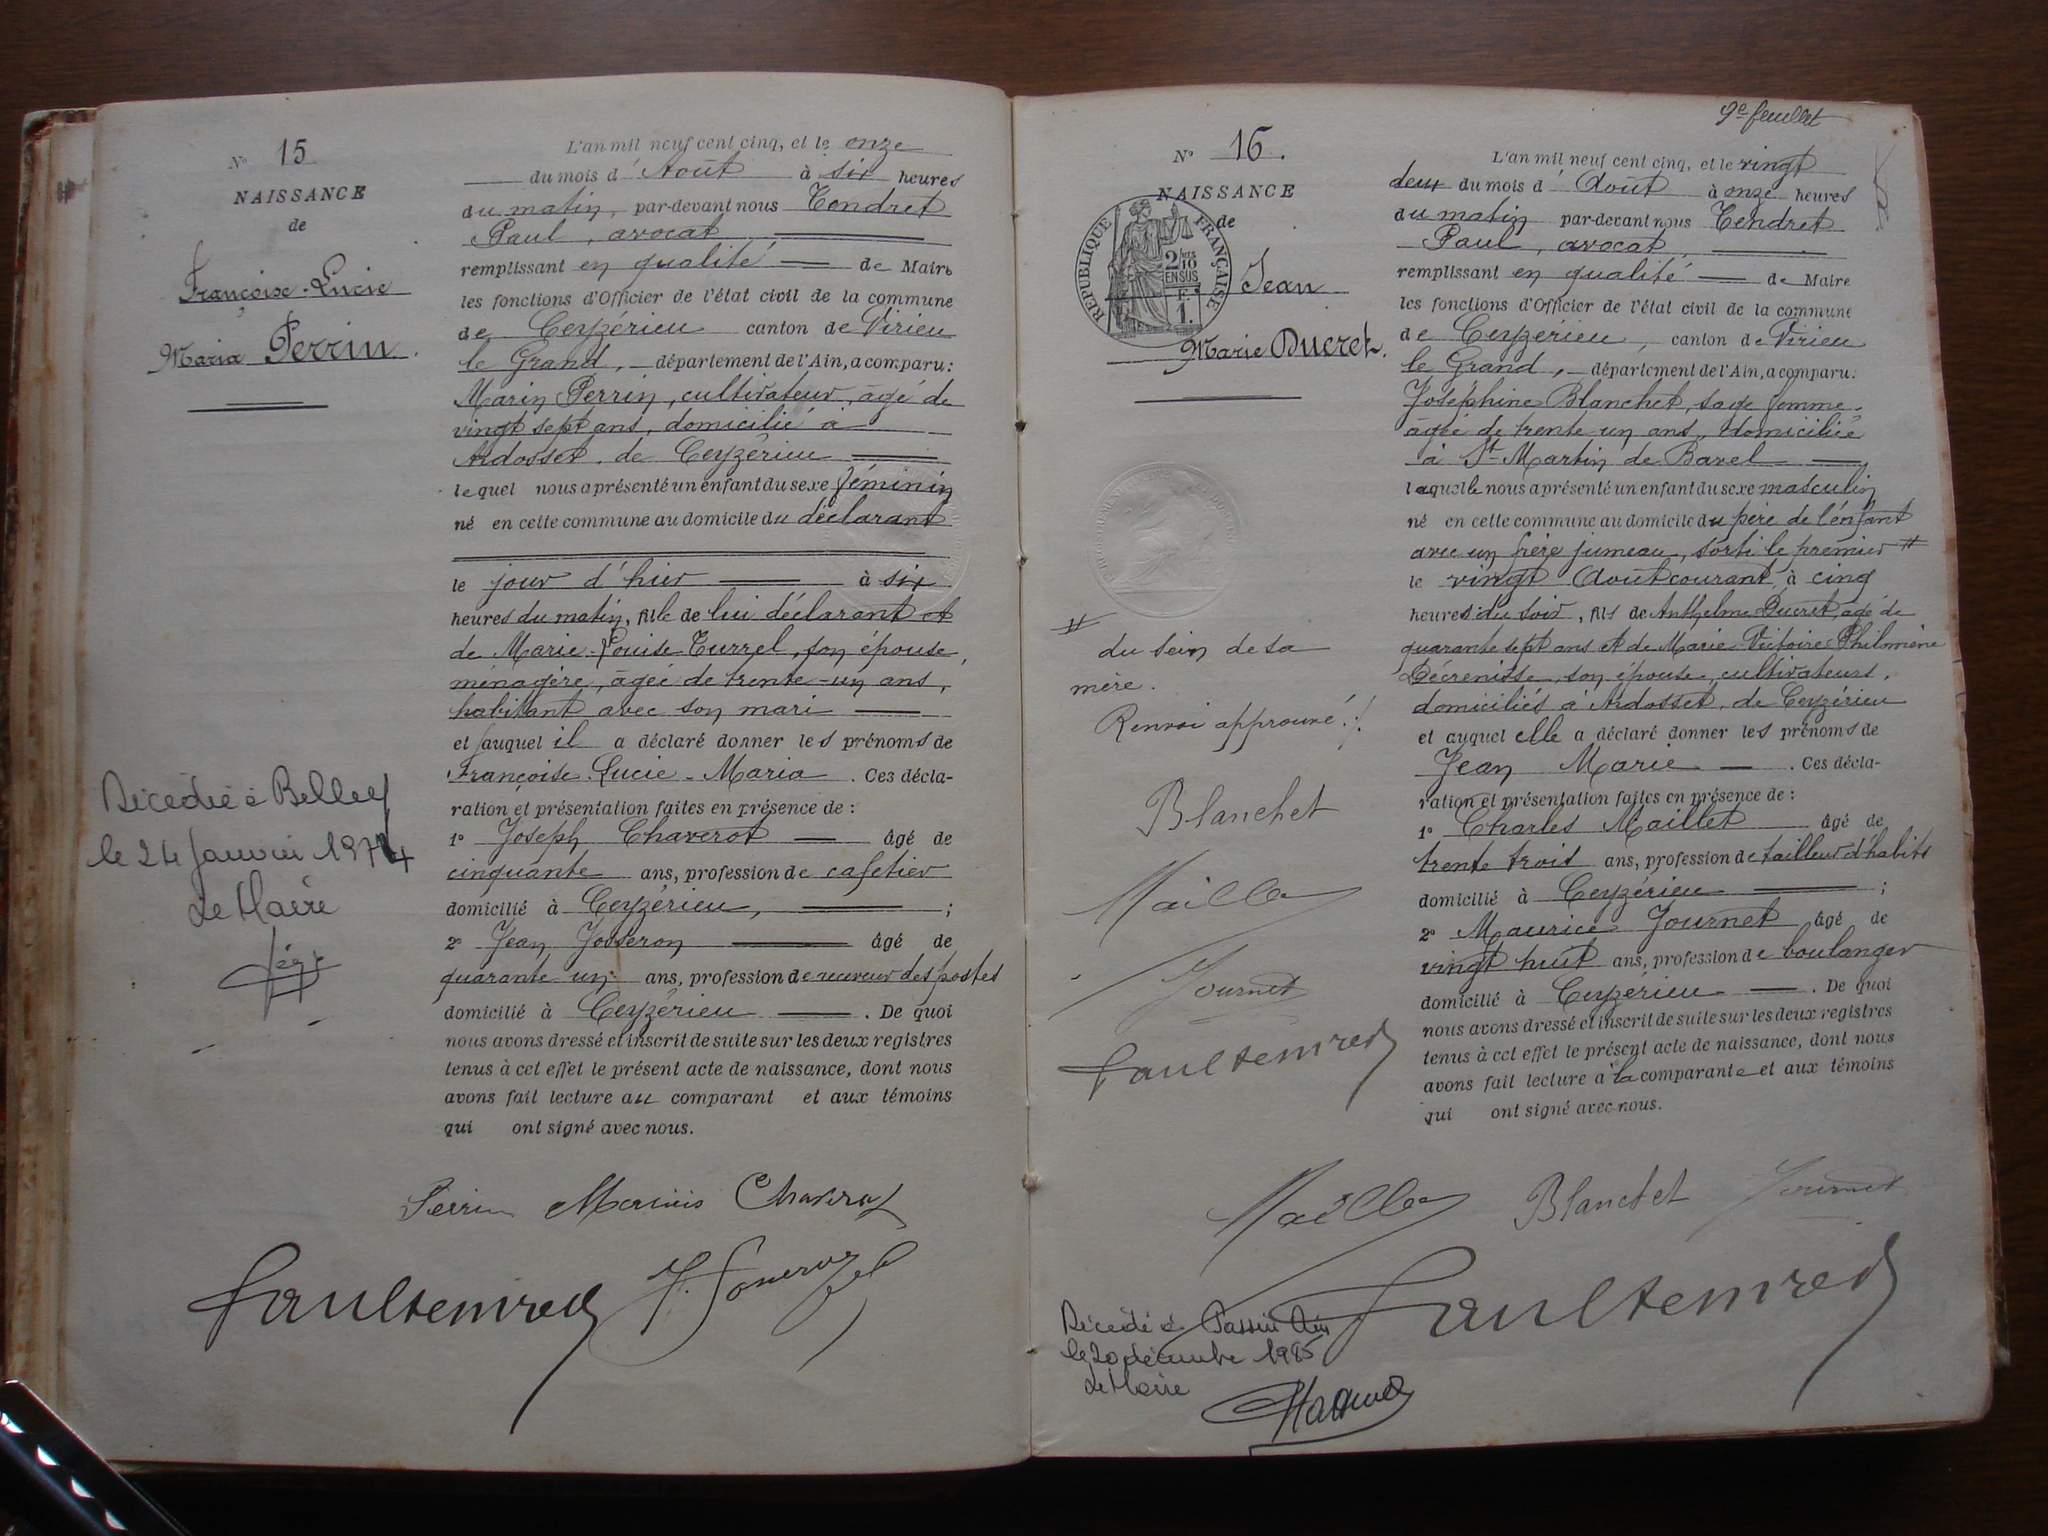 Nº 15
NAISSANCE
de
Françoise-Lucie
Maria Perrin.
Décédée à Belley
le 24 janvier 1974
Le Maire
L'an mil neuf cent cinq, et le onze
du mois d'Août à six heures
du matin, par-devant nous Tendret
Paul, avocat
remplissant en qualité de Maire
les fonctions d'Officier de l'état civil de la commune
de Ceyzérieu canton de Virieu
le Grand, département de l'Ain, a comparu:
Marin Perrin, cultivateur, âgé de
vingt sept ans, domicilié à
Ardosset, de Ceyzérieu
lequel nous a présenté un enfant du sexe féminin
né en cette commune au domicile du déclarant
le jour d'hier à six
heures du matin, fille de lui déclarant et
de Marie-Louise Turrel, son épouse,
ménagère, âgée de trente-un ans,
habitant avec son mari
et auquel il a déclaré donner les prénoms de
Françoise-Lucie-Maria. Ces décla-
ration et présentation faites en présence de:
1º Joseph Chaverot âgé de
cinquante ans, profession de cafetier
domicilié à Ceyzérieu, ;
2º Jean Josseron âgé de
quarante un ans, profession de receveur des postes
domicilié à Ceyzérieu. De quoi
nous avons dressé et inscrit de suite sur les deux registres
tenus à cet effet le présent acte de naissance, dont nous
avons fait lecture au comparant et aux témoins
qui ont signé avec nous.
Perrin Marius Chaverot
Paul Tendret J. Josseron
9e feuillet
Nº 16.
NAISSANCE
de
RÉPUBLIQUE FRANÇAISE
2/10
EN SUS
F.
1.
Jean
Marie Ducret.
#
du sein de sa
mère.
Renvoi approuvé ./.
Blanchet
Maillet
Journet
Paul Tendret
L'an mil neuf cent cinq, et le vingt
deux du mois d'Août à onze heures
du matin par-devant nous Tendret
Paul, avocat,
remplissant en qualité de Maire
les fonctions d'Officier de l'état civil de la commune
de Ceyzérieu, canton de Virieu
le Grand, département de l'Ain, a comparu:
Joséphine Blanchet, sage femme,
âgée de trente un ans, domiciliée
à St-Martin de Bavel
laquelle nous a présenté un enfant du sexe masculin
né en cette commune au domicile du père de l'enfant
avec un frère jumeau, sorti le premier #
le vingt Août courant, à cinq
heures du soir, fils de Anthelme Ducret, âgé de
quarante sept ans et de Marie Victoire Philomène
Décrenisse, son épouse, cultivateurs,
domiciliés à Ardosset, de Ceyzérieu
et auquel elle a déclaré donner les prénoms de
Jean Marie. Ces décla-
ration et présentation faites en présence de:
1º Charles Maillet âgé de
trente trois ans, profession de tailleur d'habits
domicilié à Ceyzérieu ;
2º Maurice Journet âgé de
vingt huit ans, profession de boulanger
domicilié à Ceyzérieu. De quoi
nous avons dressé et inscrit de suite sur les deux registres
tenus à cet effet le présent acte de naissance, dont nous
avons fait lecture à la comparante et aux témoins
qui ont signé avec nous.
Maillet Blanchet Journet
Paul Tendret
Décédé à Passin Ain
le 20 décembre 1985
Le Maire